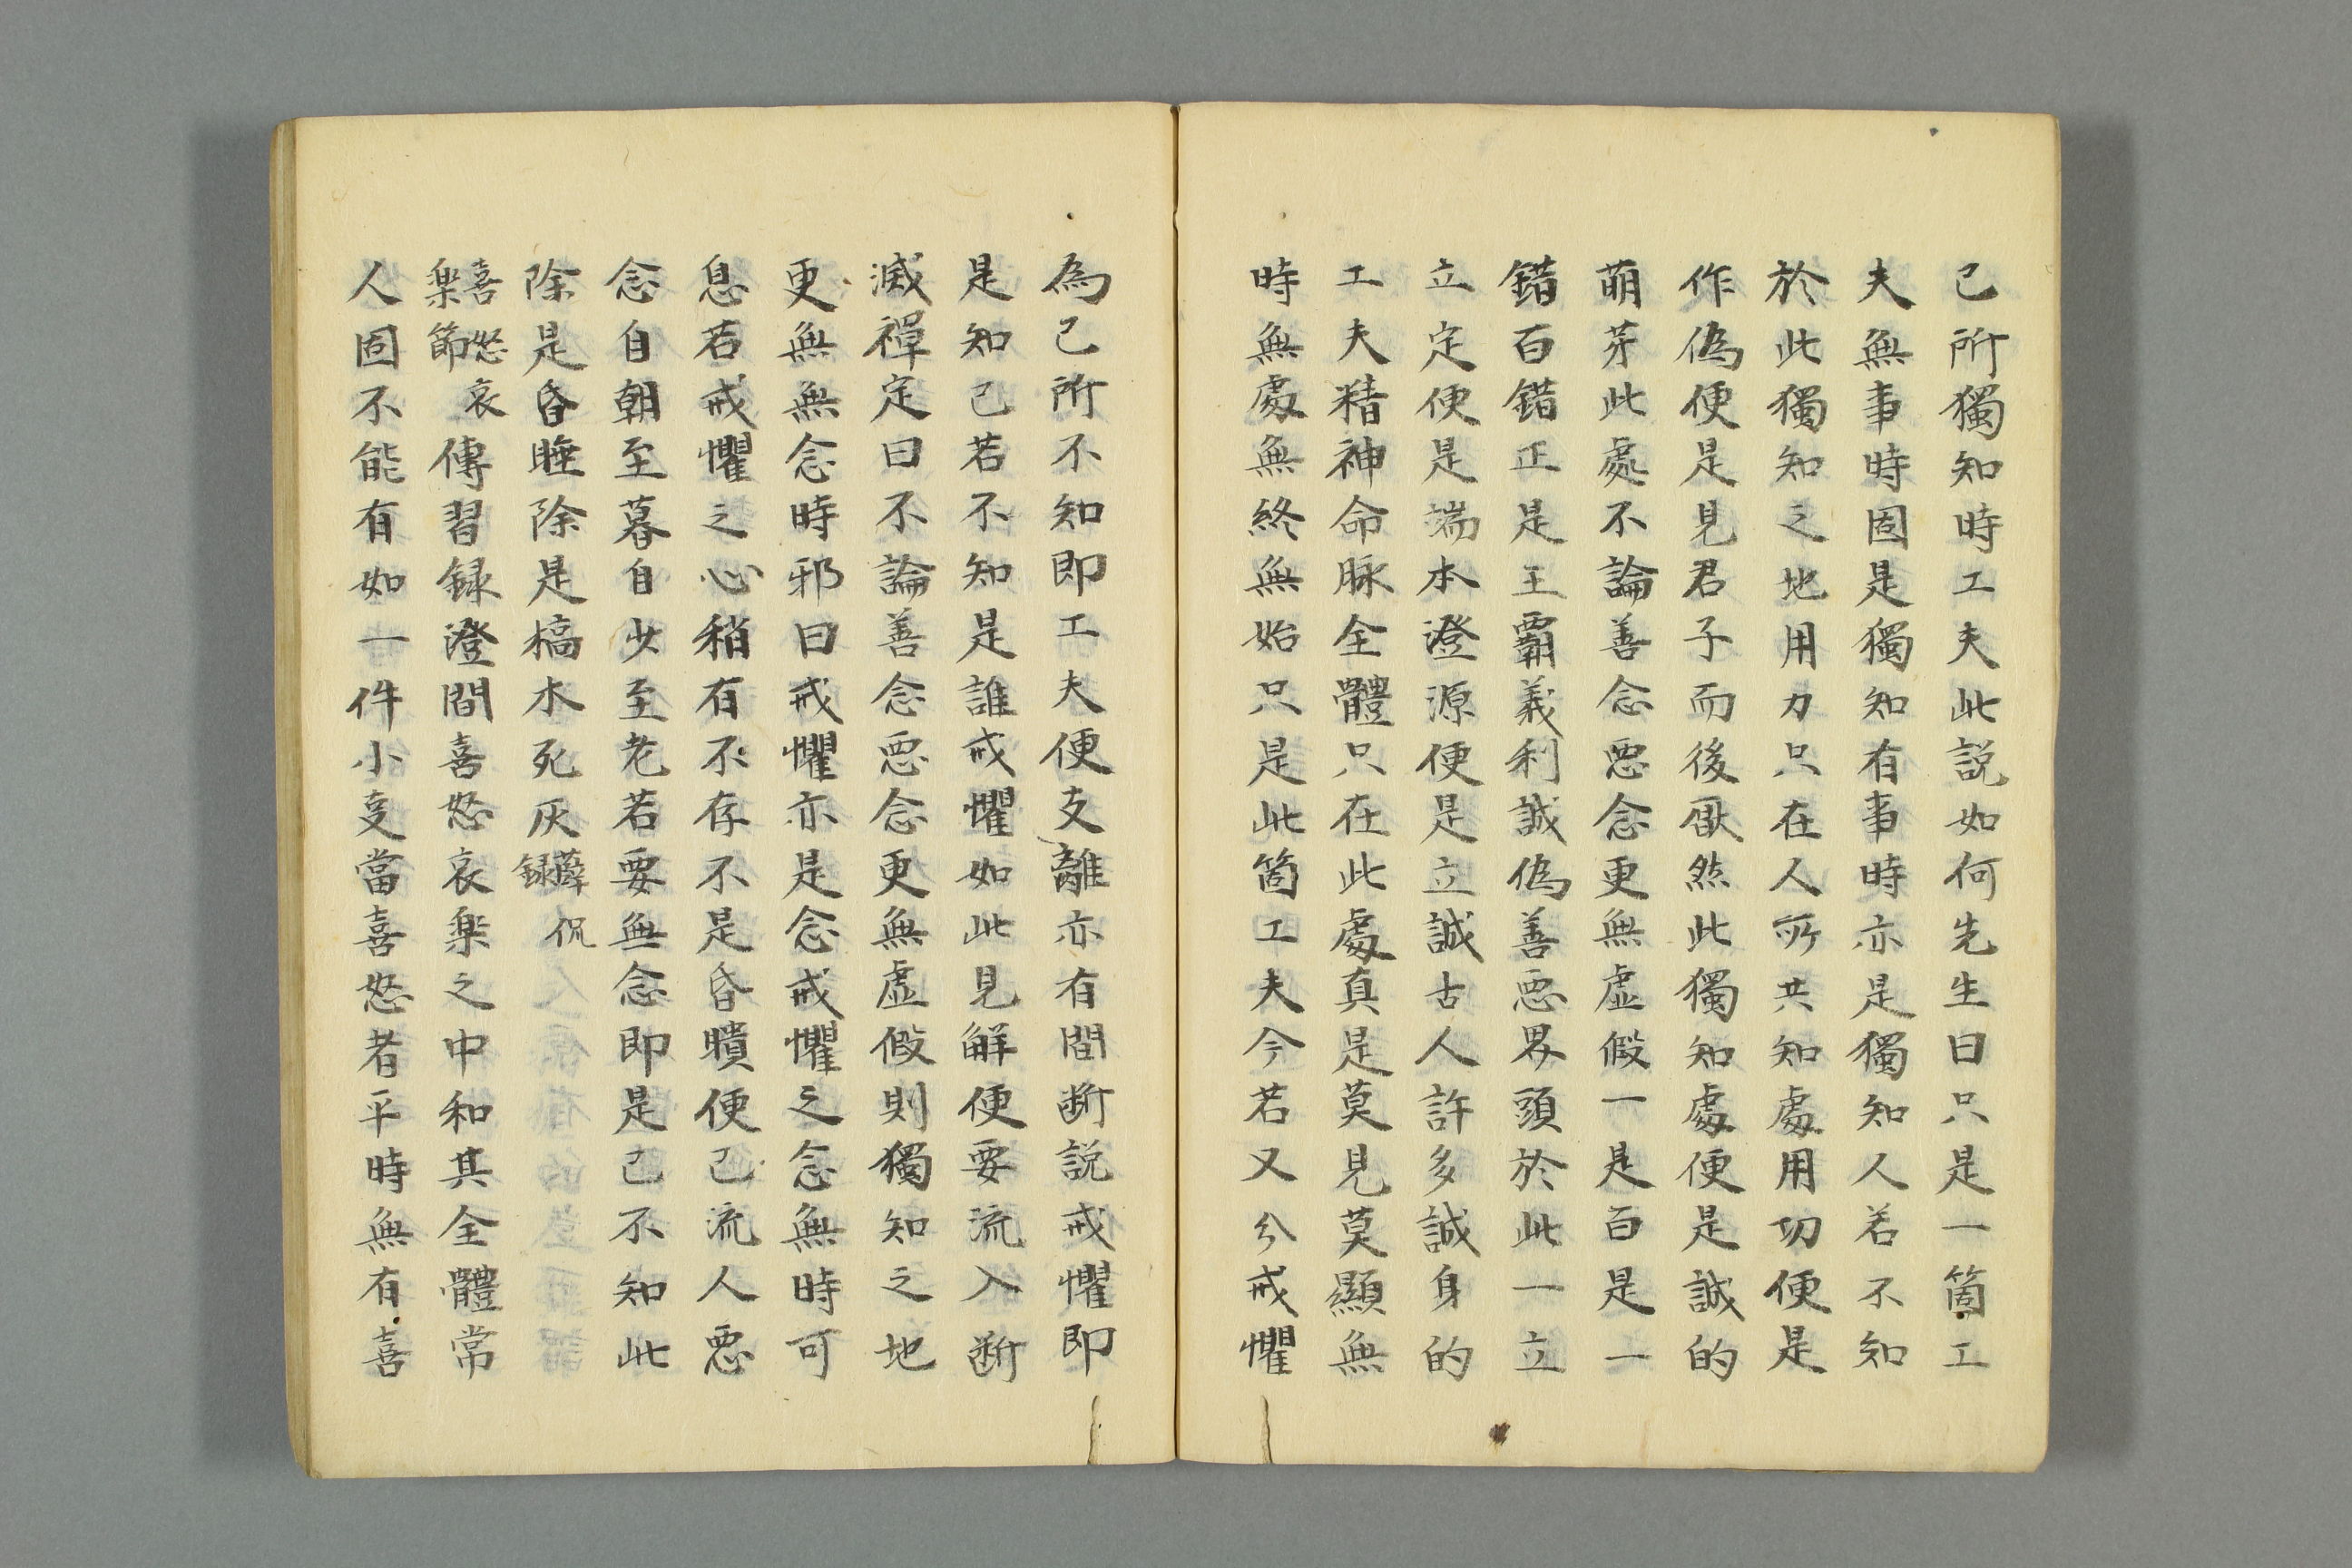 己所獨知時工夫此説如何先生曰只是一箇工
夫無事時固是獨知有事時亦是獨知人若不知
於此獨知之地用力只在人所共知處用功便是
作偽便是見君子而後厭然此獨知處便是誠的
萌芽此處不論善念悪念更無虚假一是百是一
錯百錯正是王霸義利誠偽善悪界頭於此一立
立定便是端本澄源便是立誠古人許多誠身的
工夫精神命脉全體只在此處真是莫見莫顯無
時無處無終無始只是此箇工夫今若又兮戒懼
為己所不知即工夫便支離亦有間断説戒懼即
是知己若不知是誰戒懼如此見解便要流入断
滅禪定曰不論善念悪念更無虚假則獨知之地
更無無念時邪曰戒懼亦是念戒懼之念無時可
息若戒懼之心稍有不存不是昏聵便己流人悪
念自朝至暮自少至老若要無念即是己不知此
除是昏睡除是槁木死灰薛侃
録
喜怒哀
楽節傳習録澄問喜怒哀楽之中和其全體常
人固不能有如一件小叓當喜怒者平時無有喜